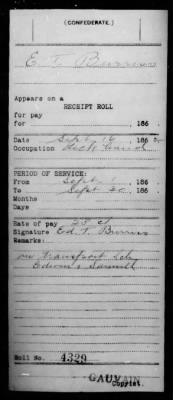 (CONFEDERATE.)
E. T. Burriss
Appears on a
RECEIPT ROLL
for pay
for , 186 .
Date Sept. 16 , 186
Occupation Deck hand
PERIOD OF SERVICE:
From Sept. 1 , 186 .
To Sept 20 , 186 .
Months
Days
Rate of pay
Signature Ed. T. Burriss
Remarks:
on transport
Roll No. 4329
GAUVAIN
Copyist.